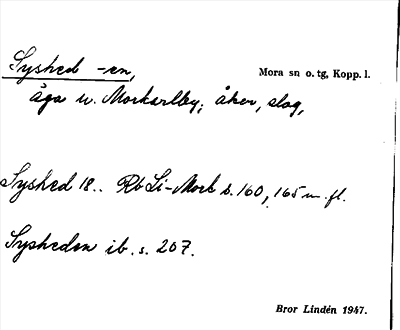 Syshed -en,
Mora sn o. tg, Kopp. l.
äga w. Morkarlby; åker, slog,
Syshed 18.. Rb Li-Mork s. 160, 165 m. fl.
Sysheden ib. s. 207.
Bror Lindén 1947.